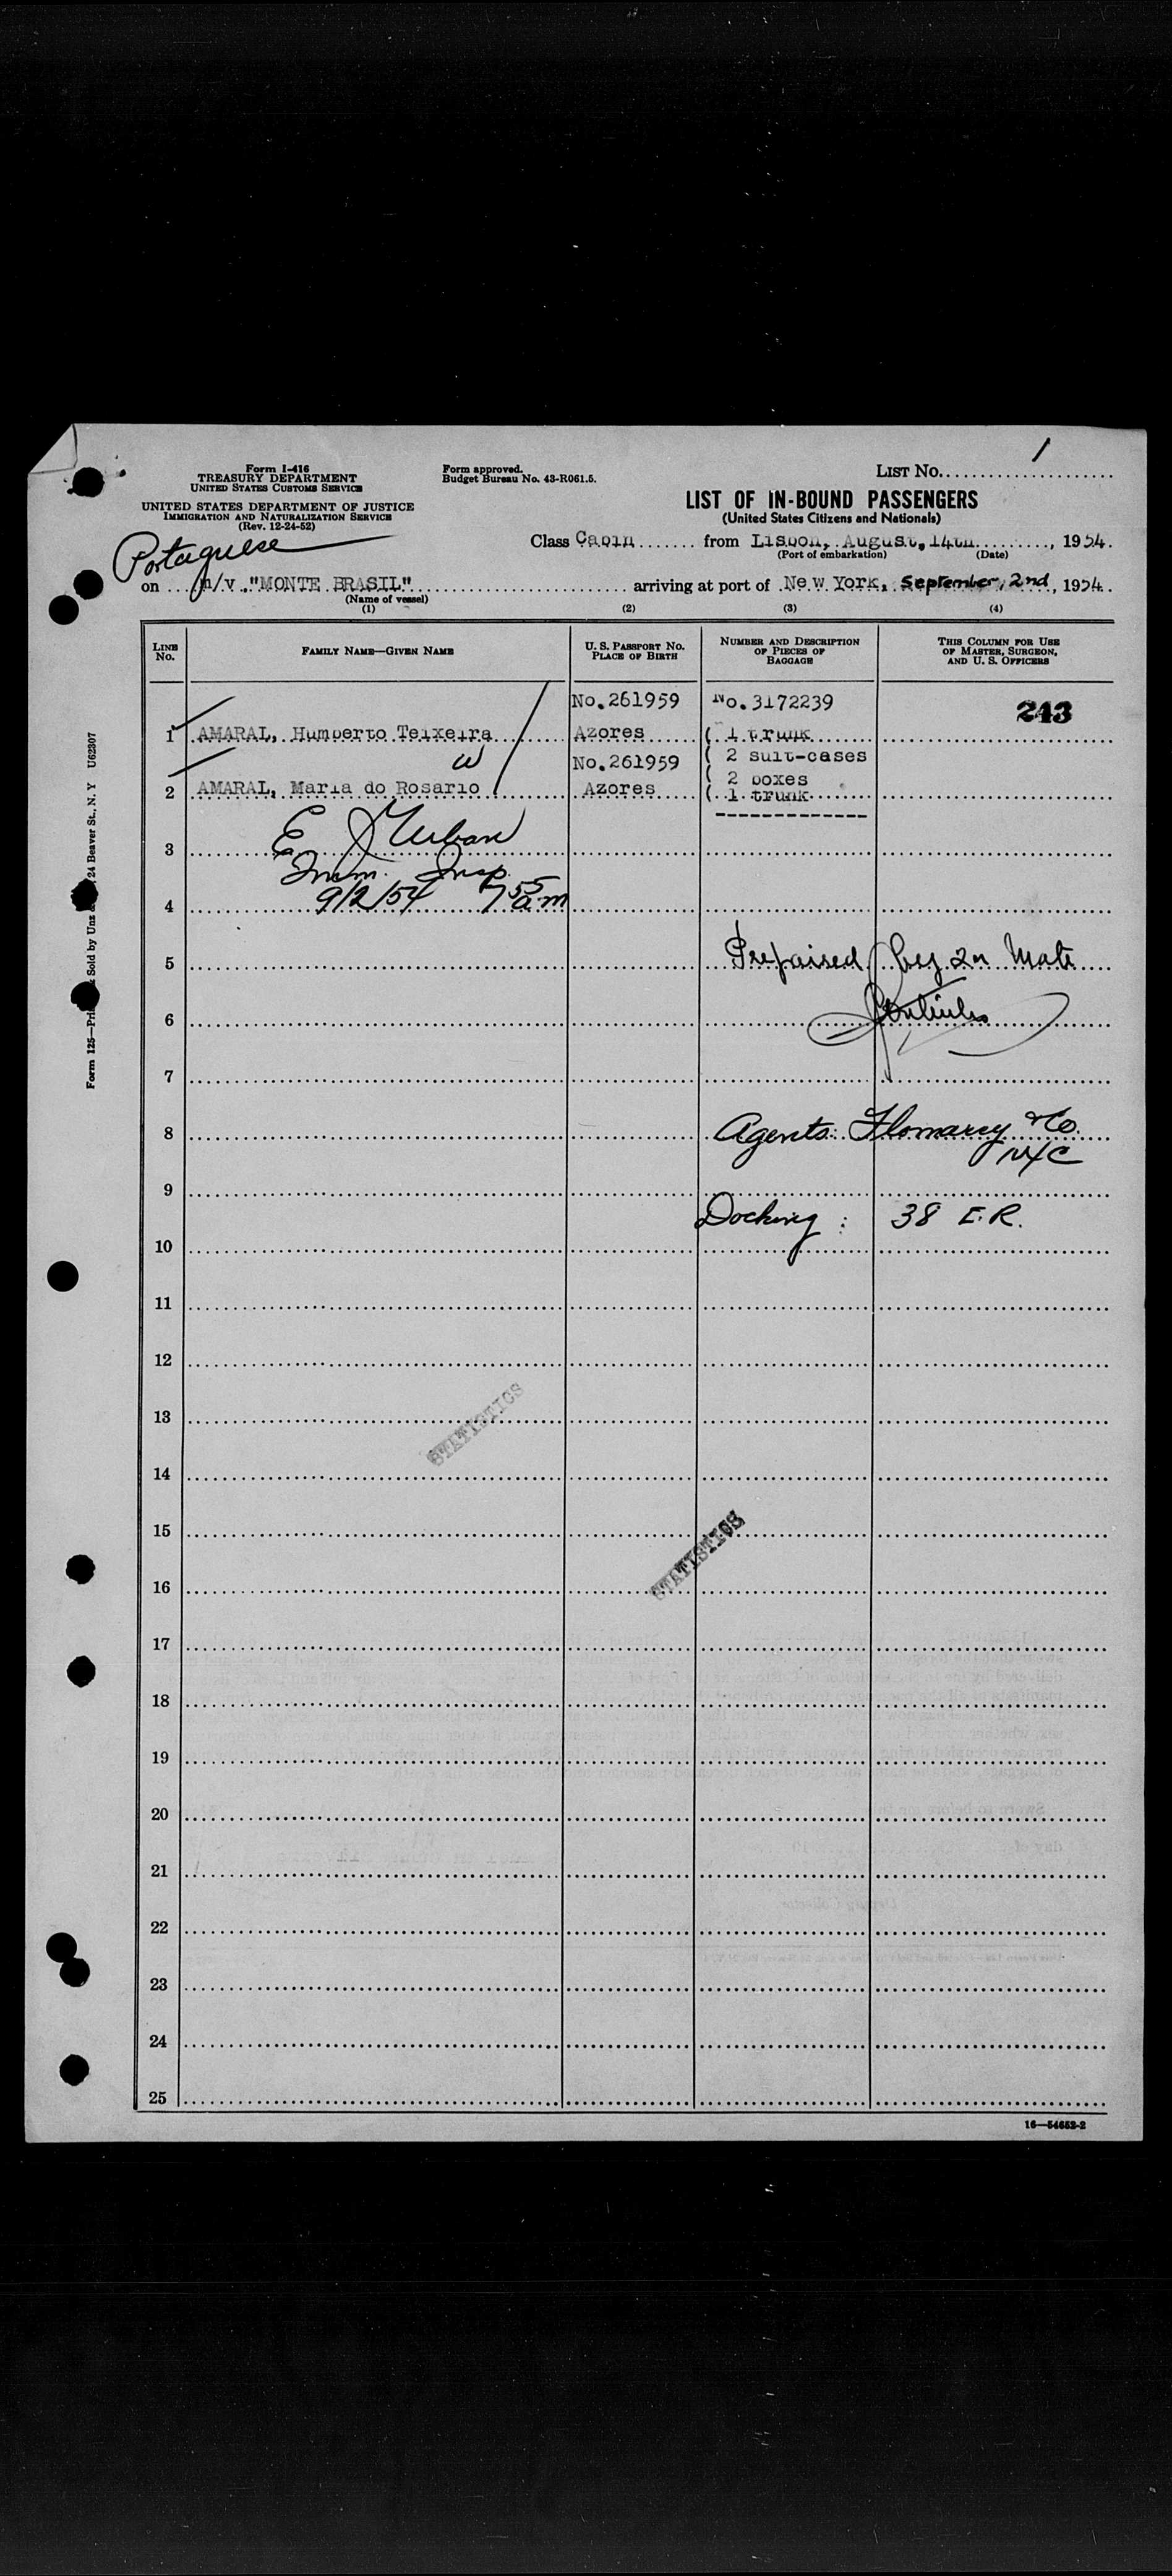 1
Form I-416
TREASURY DEPARTMENT
UNITED STATES CUSTOMS SERVICE
UNITED STATES DEPARTMENT OF JUSTICE
IMMIGRATION AND NATURALIZATION SERVICE
(Rev. 12-24-52)
Form approved.
Budget Bureau No. 43-R061.5.
LIST No.
LIST OF IN-BOUND PASSENGERS
(United States Citizens and Nationals)
Portuguese
Class Cabin from Lisbon, August, 14th, 1954.
(Port of embarkation) (Date)
on m/v "MONTE BRASIL" arriving at port of New York, September, 2nd, 1954.
(Name of vessel)
(1) (2) (3) (4)
LINE No. FAMILY NAME—GIVEN NAME U. S. PASSPORT No. PLACE OF BIRTH NUMBER AND DESCRIPTION OF PIECES OF BAGGAGE THIS COLUMN FOR USE OF MASTER, SURGEON, AND U. S. OFFICERS
No.261959 No.3172239 243
1 AMARAL, Humberto Teixeira Azores ( 1 trunk
W No.261959 ( 2 suit-cases
( 2 boxes
2 AMARAL, Maria do Rosario Azores ( 1 trunk
3 E J
Imm. Insp.
4 9/2/54 7 55 a.m
5 Prepaired by 2n Mate
6
7
8 Agents: & Co.
NYC
9
Docking : 38 E.R.
10
11
12
13
STATISTICS
14
15
STATISTICS
16
17
18
19
20
21
22
23
24
25
16—54652-2
Form 125—Pri Sold by Unz & 24 Beaver St., N. Y U62307